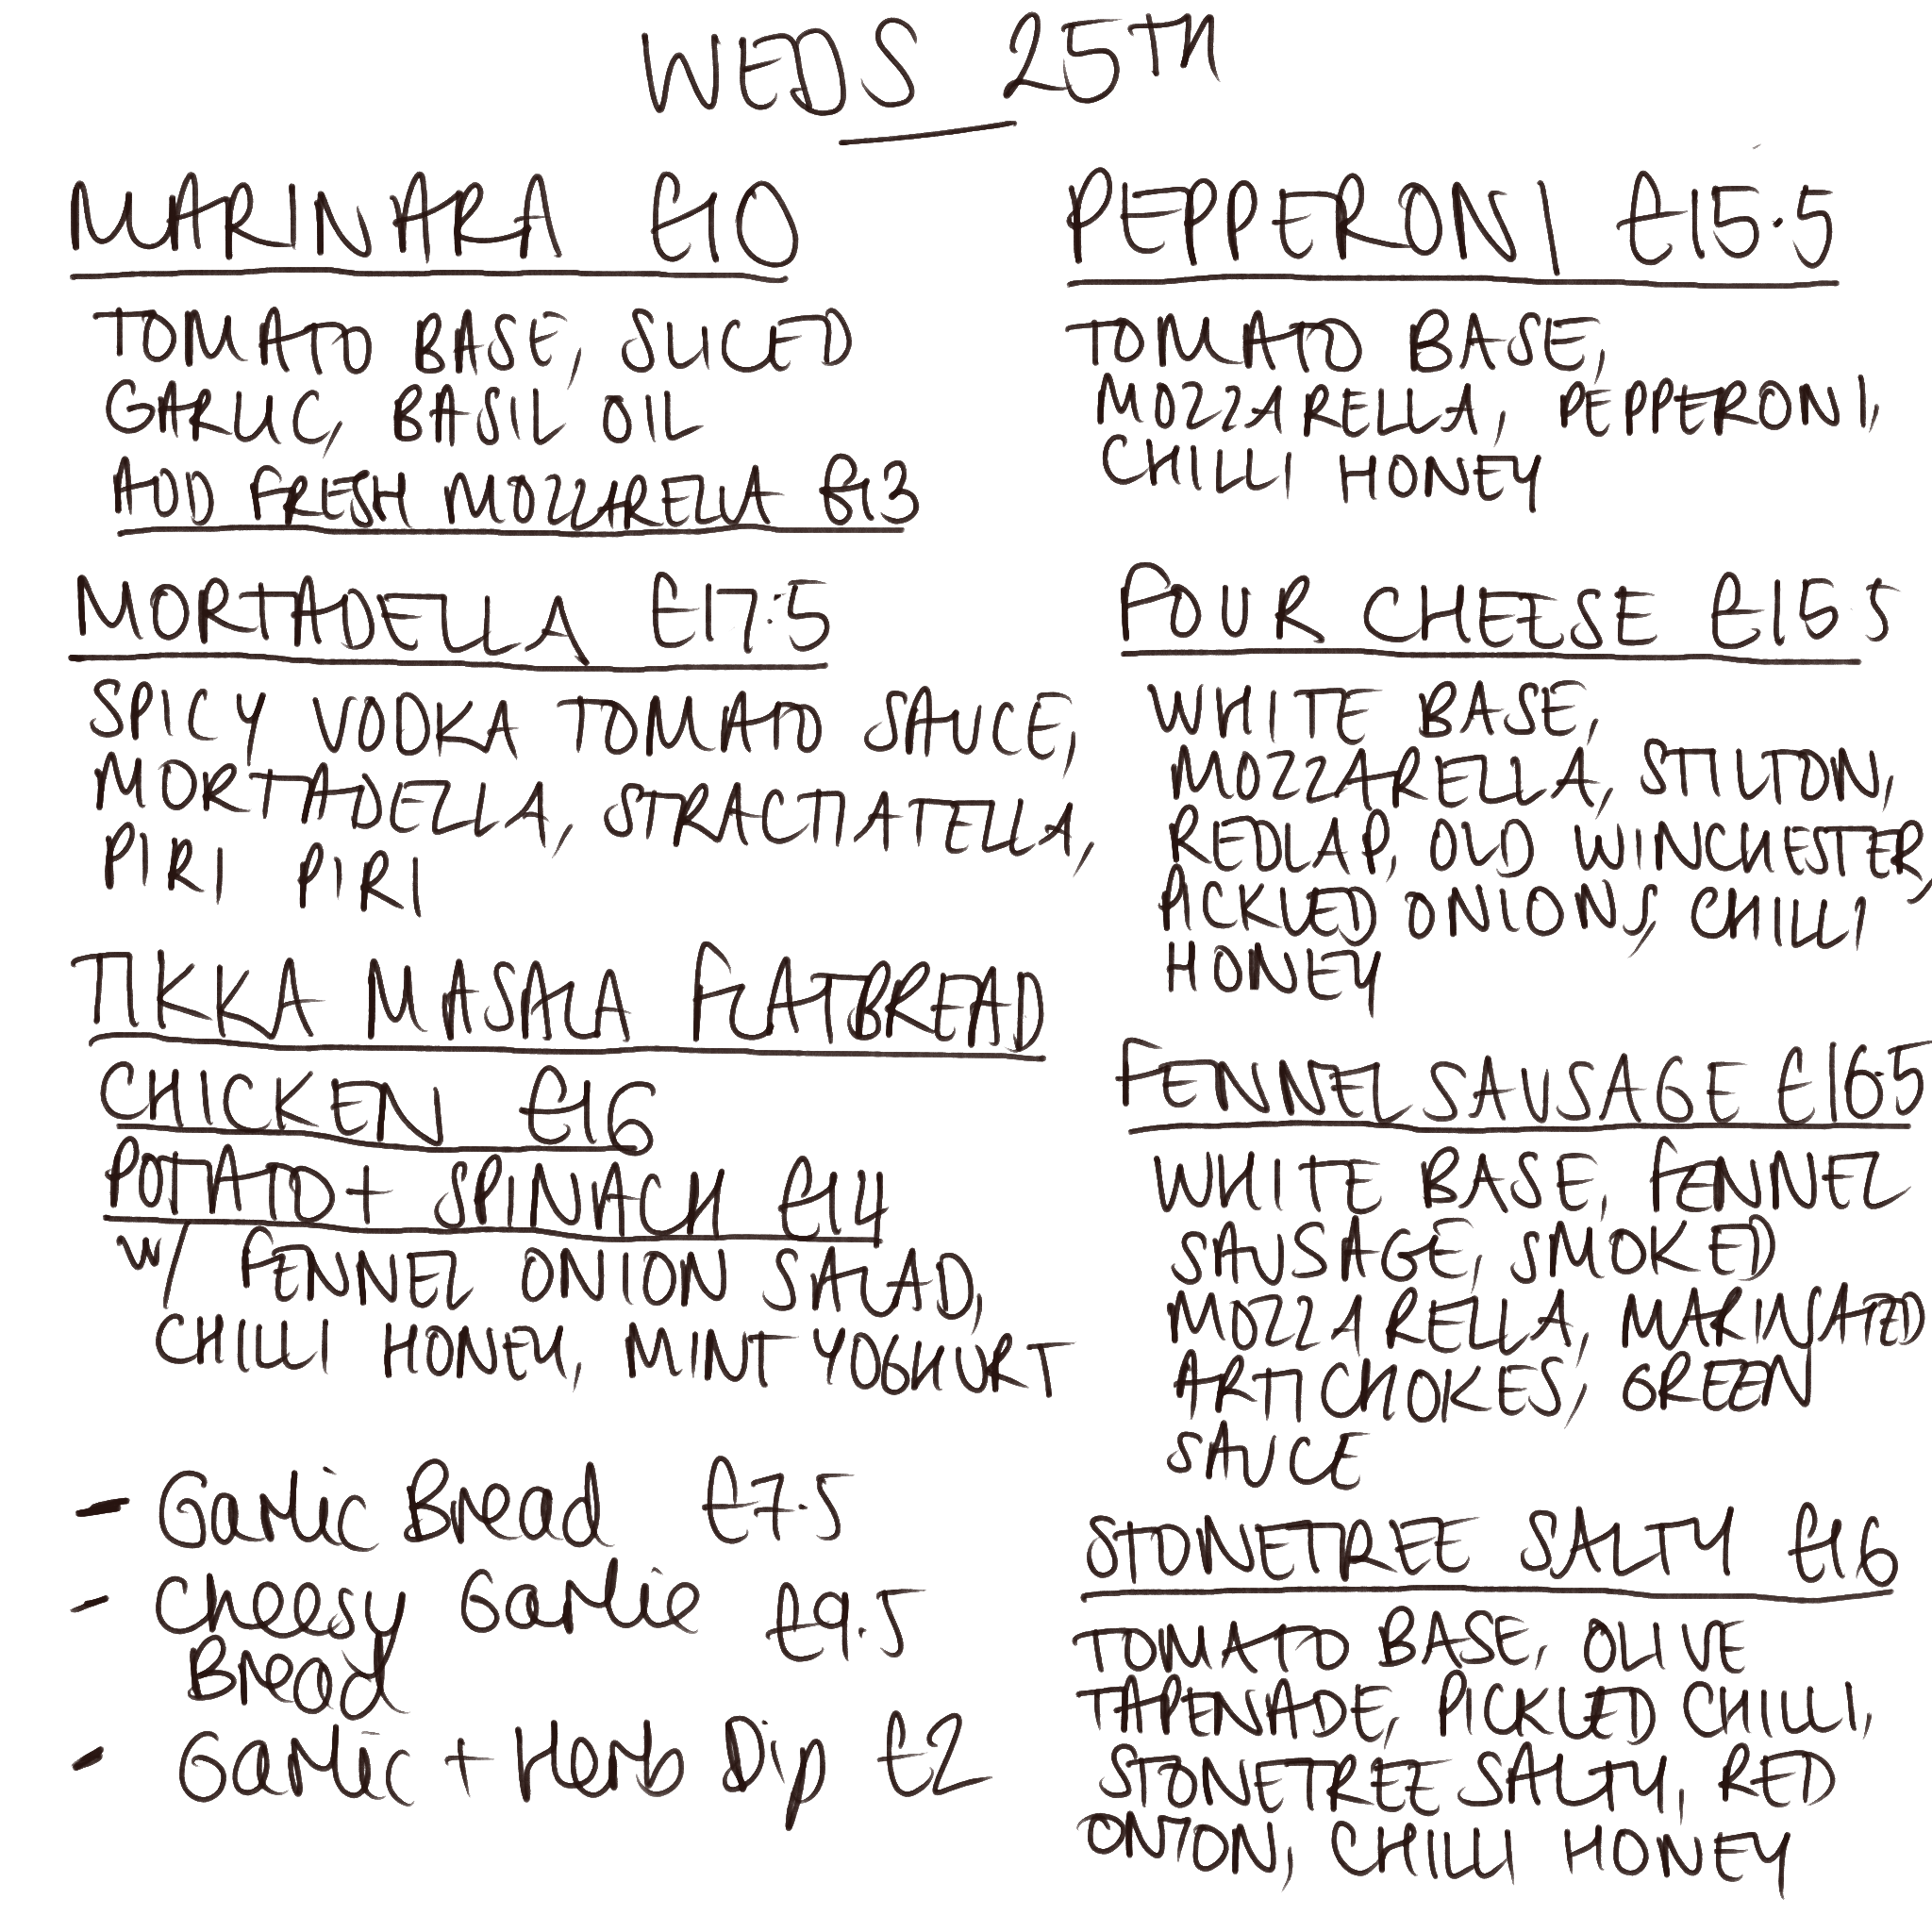 WEDS 25TH
MARINARA £10
TOMATO BASE, SLICED
GARLIC, BASIL OIL
ADD FRESH MOZZARELLA £13
MORTADELLA £17.5
SPICY VODKA TOMATO SAUCE,
MORTADELLA, STRACTIATELLA,
PIRI PIRI
TIKKA MASALA FLATBREAD
CHICKEN £16
POTATO + SPINACH £14
W/ FENNEL ONION SALAD,
CHILLI HONEY, MINT YOGHURT
- Garlic Bread £7.5
- Cheesy Garlic £9.5
Bread
- Garlic + Herb Dip £2
PEPPERONI £15.5
TOMATO BASE,
MOZZARELLA, PEPPERONI,
CHILLI HONEY
FOUR CHEESE £15.5
WHITE BASE,
MOZZARELLA, STILTON,
REDLAP, OLD WINCHESTER,
PICKLED ONIONS, CHILLI
HONEY
FENNEL SAUSAGE £16.5
WHITE BASE, FENNEL
SAUSAGE, SMOKED
MOZZARELLA, MARINATED
ARTICHOKES, GREEN
SAUCE
STONETREE SALTY £16
TOMATO BASE, OLIVE
TAPENADE, PICKLED CHILLI,
STONETREE SALTY, RED
ONION, CHILLI HONEY